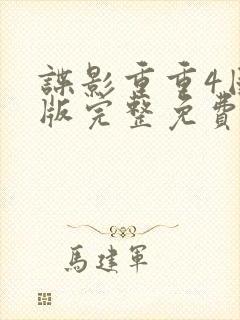 諜影重重4国
版完整免費
馬建軍